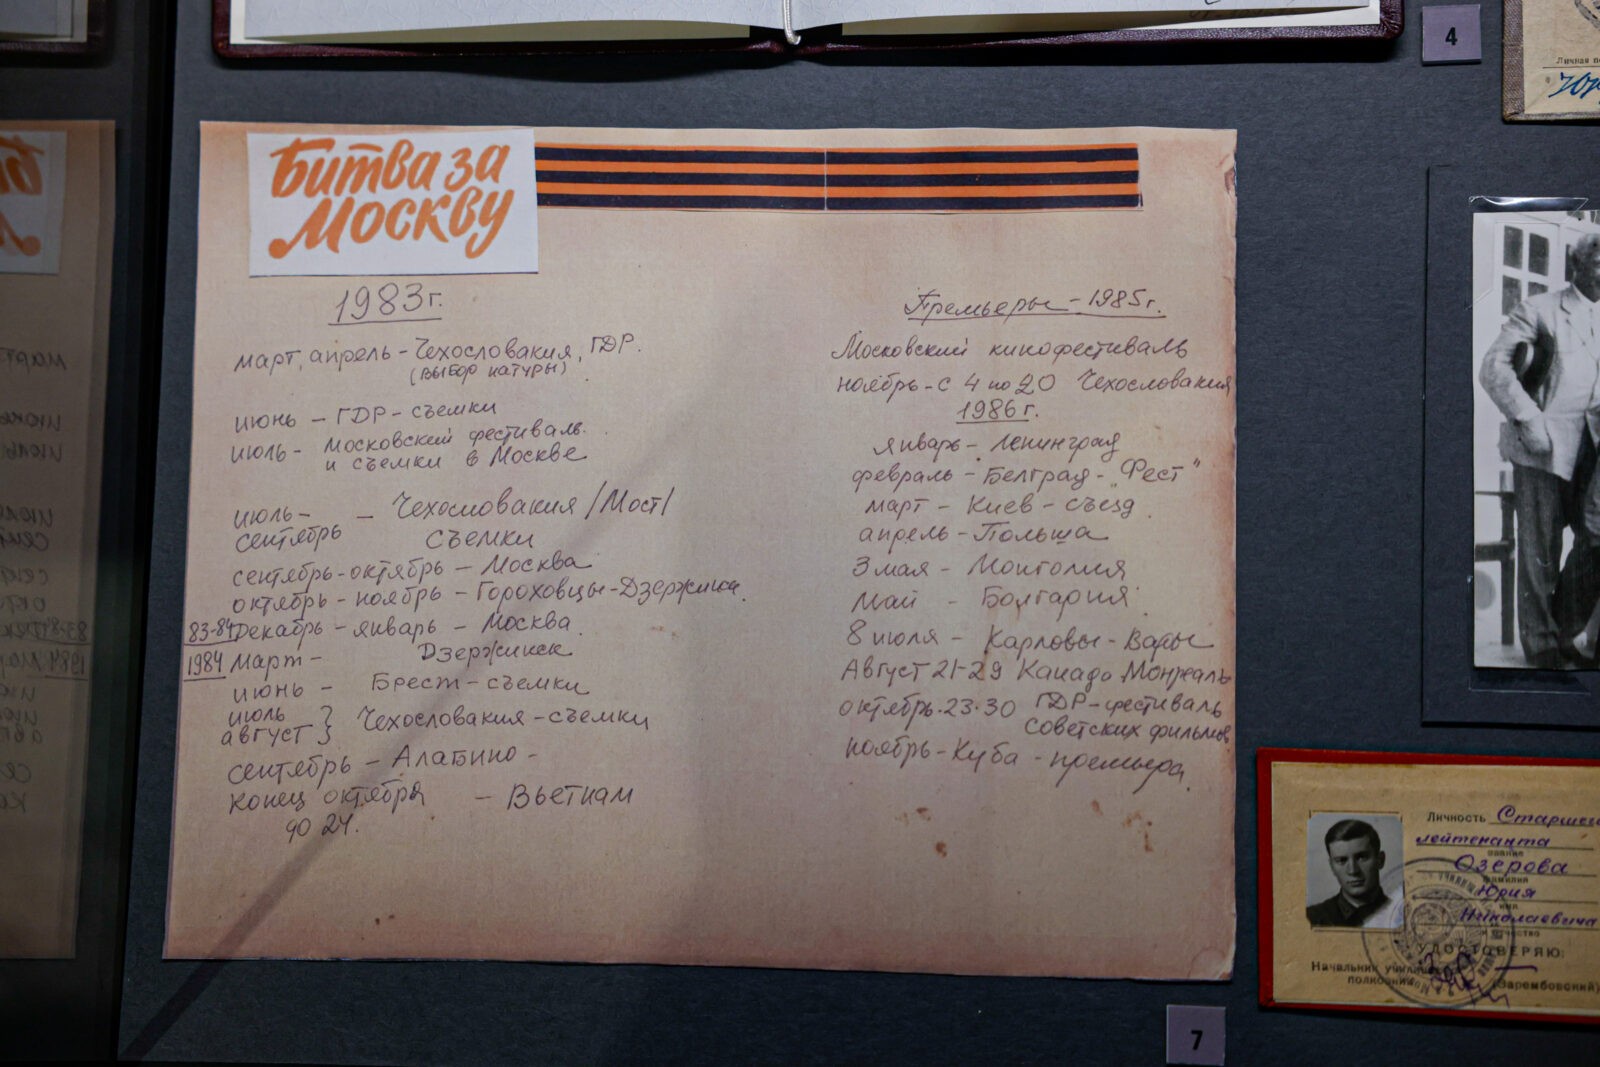 4
Личная
Битва за
Москву
1983г.
март, апрель – Чехословакия, ГДР.
(выбор натуры)
июнь – ГДР – съемки
июль – Московский фестиваль
и съемки в Москве
июль – – Чехословакия /Мост/
сентябрь съемки
сентябрь-октябрь – Москва
октябрь – ноябрь – Гороховцы-Дзержинск.
83-84 Декабрь – январь – Москва.
1984 Март – Дзержинск
июнь – Брест – съемки
июль } Чехословакия – съемки
август }
сентябрь – Алабино –
конец октября – Вьетнам
до 24.
Премьеры – 1985г.
Московский кинофестиваль
ноябрь – с 4 по 20 Чехословакия
1986г.
январь – Ленинград
февраль – Белград – „Фест"
март – Киев – съезд
апрель – Польша
3 мая – Монголия
май – Болгария
8 июля – Карловы-Вары
Август 21-29 Канада Монреаль
октябрь. 23-30 ГДР – фестиваль
Советских фильмов
ноябрь – Куба – премьера
Личность
лейтенанта
звание
Озерова
фамилия
Юрия
имя
Николаевича
отчество
УДОСТОВЕРЯЮ:
Начальник
полковник (Зарембовский)
7